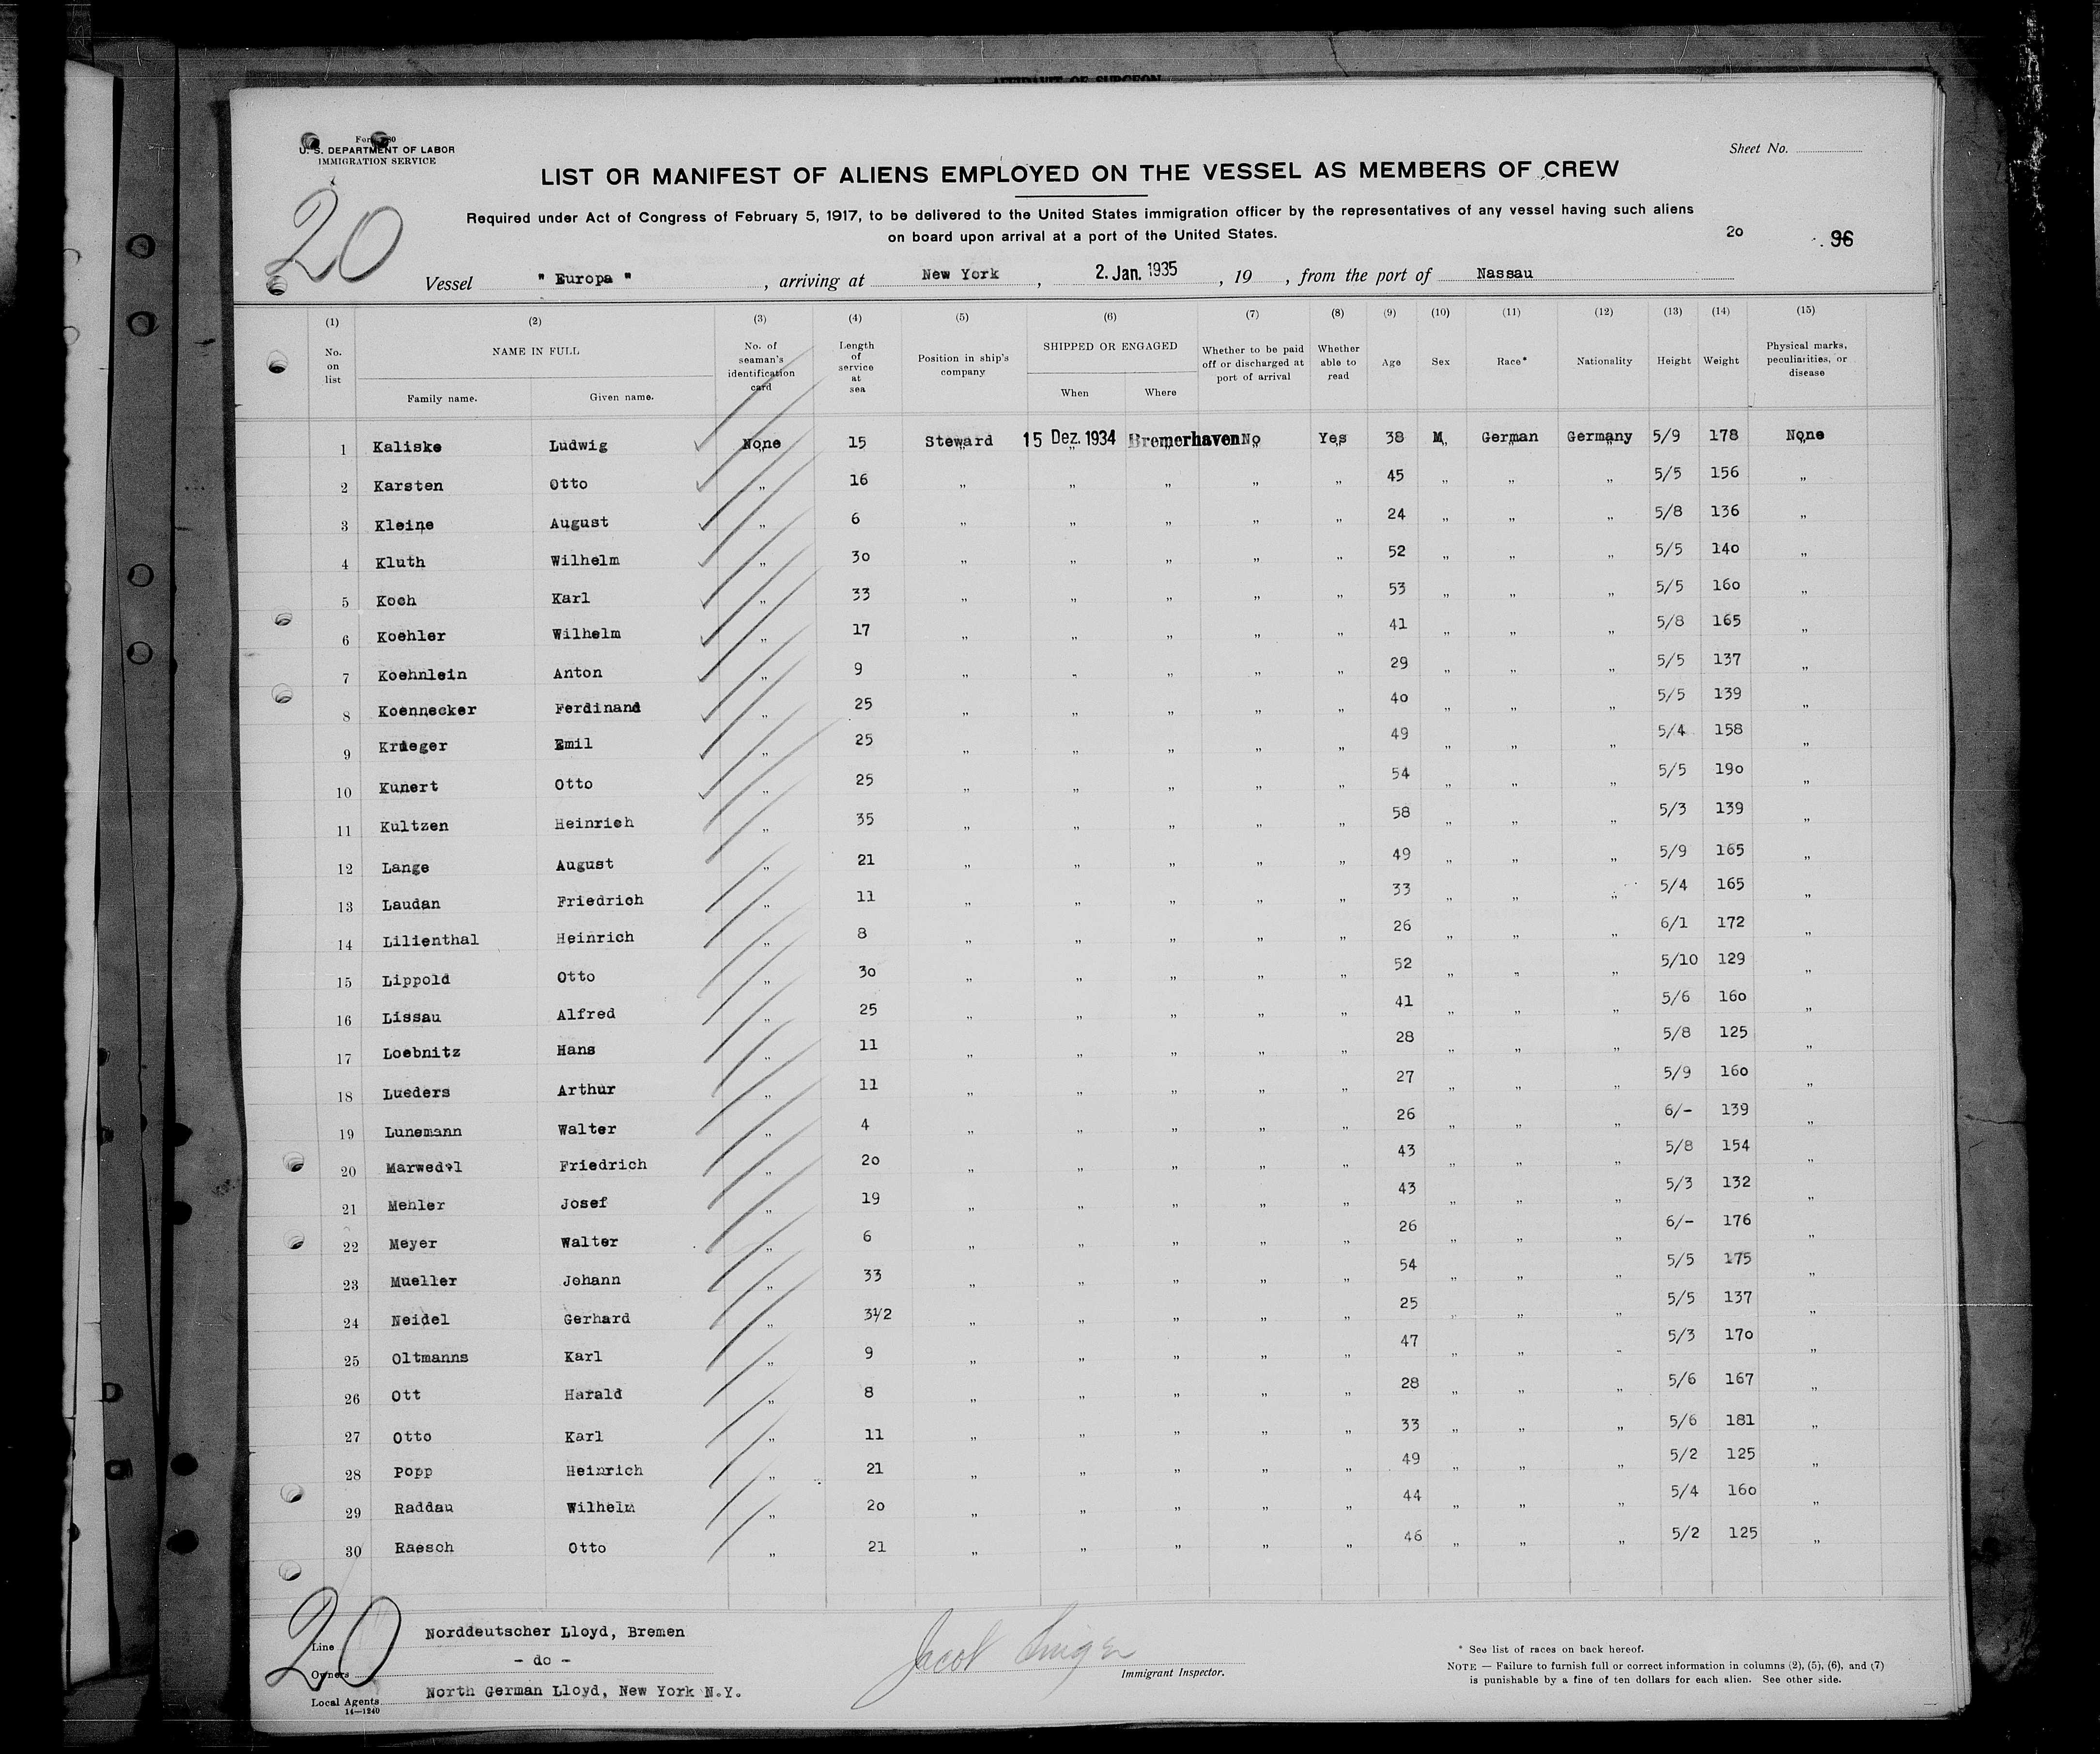 AFFIDAVIT OF SURGEON
U. S. DEPARTMENT OF LABOR
IMMIGRATION SERVICE
Sheet No.
LIST OR MANIFEST OF ALIENS EMPLOYED ON THE VESSEL AS MEMBERS OF CREW
20
Required under Act of Congress of February 5, 1917, to be delivered to the United States immigration officer by the representatives of any vessel having such aliens
on board upon arrival at a port of the United States.
20 96
Vessel " Europa " , arriving at New York , 2. Jan. 1935 , 19 , from the port of Nassau
(1) (2) (3) (4) (5) (6) (7) (8) (9) (10) (11) (12) (13) (14) (15)
No. on list NAME IN FULL Family name. Given name. No. of seaman's identification card Length of service at sea Position in ship's company SHIPPED OR ENGAGED When Where Whether to be paid off or discharged at port of arrival Whether able to read Age Sex Race* Nationality Height Weight Physical marks, peculiarities, or disease
1 Kaliske Ludwig None 15 Steward 15 Dez. 1934 Bremerhaven No Yes 38 M German Germany 5/9 178 None
2 Karsten Otto „ 16 „ „ „ „ „ 45 „ „ „ 5/5 156 „
3 Kleine August „ 6 „ „ „ „ „ 24 „ „ „ 5/8 136 „
4 Kluth Wilhelm „ 30 „ „ „ „ „ 52 „ „ „ 5/5 140 „
5 Koch Karl „ 33 „ „ „ „ „ 53 „ „ „ 5/5 160 „
6 Koehler Wilhelm „ 17 „ „ „ „ „ 41 „ „ „ 5/8 165 „
7 Koehnlein Anton „ 9 „ „ „ „ „ 29 „ „ „ 5/5 137 „
8 Koennecker Ferdinand „ 25 „ „ „ „ „ 40 „ „ „ 5/5 139 „
9 Krieger Emil „ 25 „ „ „ „ „ 49 „ „ „ 5/4 158 „
10 Kunert Otto „ 25 „ „ „ „ „ 54 „ „ „ 5/5 190 „
11 Kultzen Heinrich „ 35 „ „ „ „ „ 58 „ „ „ 5/3 139 „
12 Lange August „ 21 „ „ „ „ „ 49 „ „ „ 5/9 165 „
13 Laudan Friedrich „ 11 „ „ „ „ „ 33 „ „ „ 5/4 165 „
14 Lilienthal Heinrich „ 8 „ „ „ „ „ 26 „ „ „ 6/1 172 „
15 Lippold Otto „ 30 „ „ „ „ „ 52 „ „ „ 5/10 129 „
16 Lissau Alfred „ 25 „ „ „ „ „ 41 „ „ „ 5/6 160 „
17 Loebnitz Hans „ 11 „ „ „ „ „ 28 „ „ „ 5/8 125 „
18 Lueders Arthur „ 11 „ „ „ „ „ 27 „ „ „ 5/9 160 „
19 Lunemann Walter „ 4 „ „ „ „ „ 26 „ „ „ 6/- 139 „
20 Marwedel Friedrich „ 20 „ „ „ „ „ 43 „ „ „ 5/8 154 „
21 Mehler Josef „ 19 „ „ „ „ „ 43 „ „ „ 5/3 132 „
22 Meyer Walter „ 6 „ „ „ „ „ 26 „ „ „ 6/- 176 „
23 Mueller Johann „ 33 „ „ „ „ „ 54 „ „ „ 5/5 175 „
24 Neidel Gerhard „ 31/2 „ „ „ „ „ 25 „ „ „ 5/5 137 „
25 Oltmanns Karl „ 9 „ „ „ „ „ 47 „ „ „ 5/3 170 „
26 Ott Harald „ 8 „ „ „ „ „ 28 „ „ „ 5/6 167 „
27 Otto Karl „ 11 „ „ „ „ „ 33 „ „ „ 5/6 181 „
28 Popp Heinrich „ 21 „ „ „ „ „ 49 „ „ „ 5/2 125 „
29 Raddau Wilhelm „ 20 „ „ „ „ „ 44 „ „ „ 5/4 160 „
30 Raesch Otto „ 21 „ „ „ „ „ 46 „ „ „ 5/2 125 „
20
Line Norddeutscher Lloyd, Bremen
Owners - do -
Local Agents North German Lloyd, New York N.Y.
14—1240
Jacob
Immigrant Inspector.
* See list of races on back hereof.
NOTE — Failure to furnish full or correct information in columns (2), (5), (6), and (7)
is punishable by a fine of ten dollars for each alien. See other side.